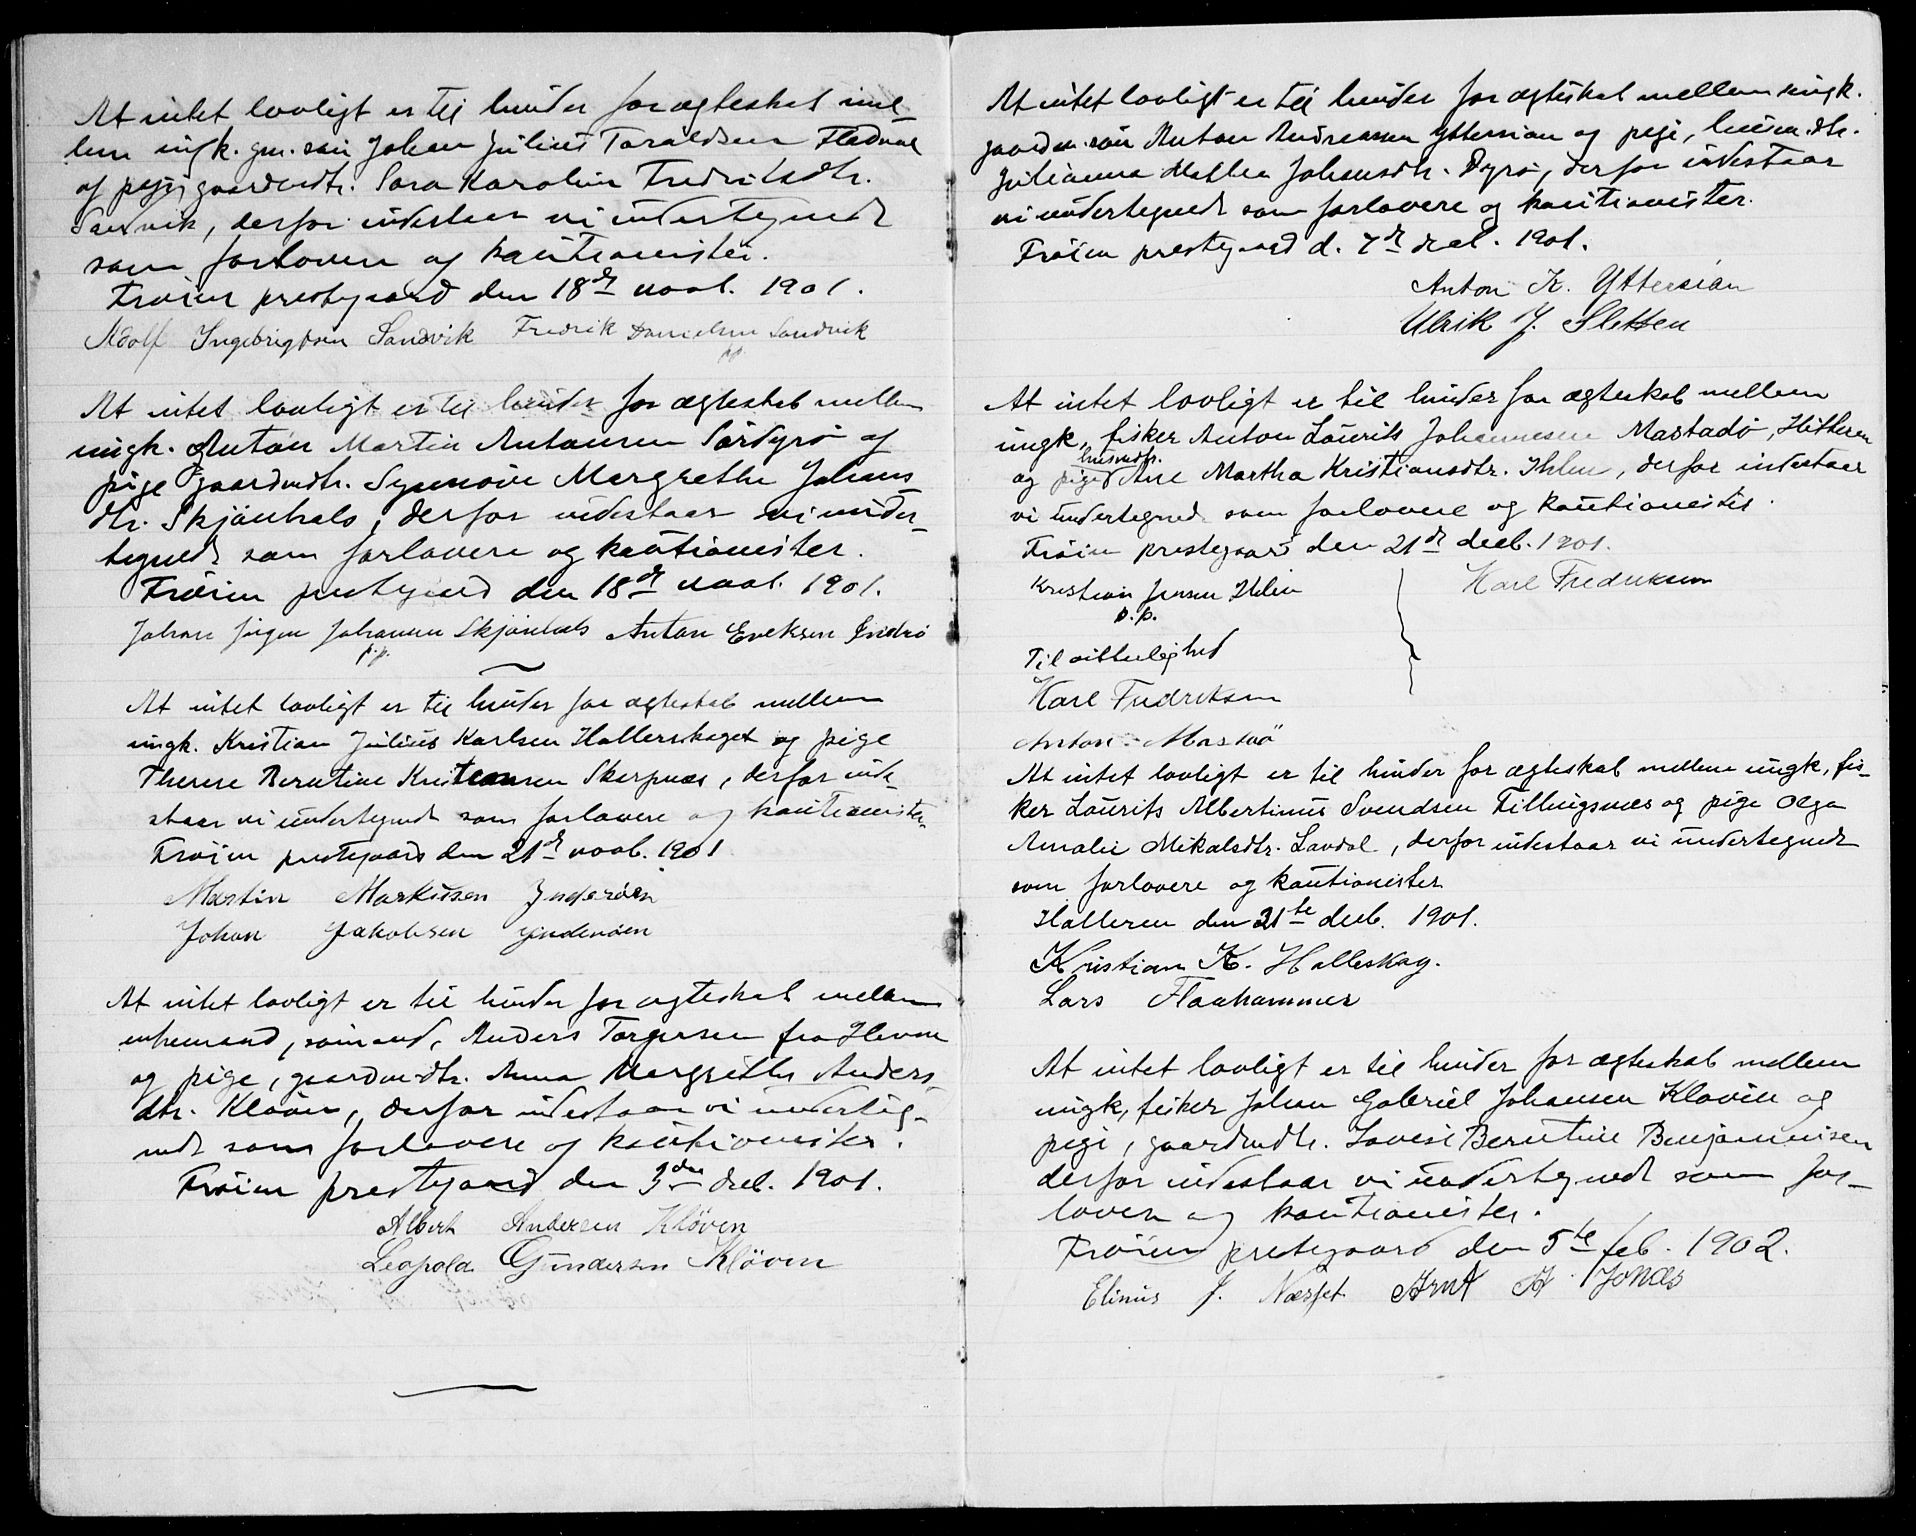 At intet lovligt er til hinder for ægteskab mel-
lem ungk. gm. søn Johan Julius Taraldsen Fladval
og pige, gaardmdtr. Sara Karoline Fredriksdtr.
Sandvik, derfor indestaar vi undertegnede
som forlovere og kautionister.
Frøien prestegaard den 18de novb. 1901.
Adolf Ingebrigtsen Sandvik Fredrik Danielsen Sandvik
p.p.
At intet lovligt er til hinder for ægteskab mellem
ungk. Anton Martin Antonsen Sørdyrø og
pige gaardmdtr. Synnøve Margrethe Johans-
dtr. Skjønhals, derfor indestaar vi under-
tegnede som forlovere og kautionister.
Frøien prestegaard den 18de novb. 1901.
Johan Jørgen Johansen Skjønhals Anton Ereksen Indrø
p.p.
At intet lovligt er til hinder for ægteskab mellem
ungk. Kristian Julius Karlsen Hallerskaget og pige
Therese Berntine Kristiansen Skarpnæs, derfor inde-
staar vi undertegnede som forlovere og kautionister.
Frøien prestegaard den 21de novb. 1901
Martin Markussen Inderøen
Johan Jakobsen Inderøen
At intet lovligt er til hinder for ægteskab mellem
enkemand, sømand, Anders Torgersen fra Hevne
og pige, gaardmdtr. Anna Margrethe Anders-
dtr. Kløven, derfor indestaar vi underteg-
nede som forlovere og kautionister.
Frøien prestegaard den 3die decb. 1901.
Albert Andersen Kløven
Leopold Gundersen Kløven
At intet lovligt er til hinder for ægteskab mellem ungk.
gaardm. søn Anton Andreassen Yttersian og pige, husm.dtr.
Julianna Mathea Johansdtr. Dyrø, derfor indestaar
vi undertegnede som forlovere og kautionister.
Frøien prestegaard d. 7de decb. 1901.
Anton K. Yttersian
Ulrik J. Sletten
At intet lovligt er til hinder for ægteskab mellem
ungk., fisker Anton Laurits Johannesen Mastadø, Hitteren
husmdtr.
og pige Ane Martha Kristiansdtr. Ihlen, derfor indestaar
vi undertegnede som forlovere og kautionister.
Frøien prestegaard den 21de decb. 1901.
Kristian Jensen Ihlen Karl Fredriksen
p.p.
Til vitterlighed
Karl Fredriksen
Anton Mastaø
At intet lovligt er til hinder for ægteskab mellem ungk, fis-
ker Laurits Albertinus Svendsen Fillingsnæs og pige Olga
Amalie Mikalsdtr. Lavdal, derfor indestaar vi undertegnede
som forlovere og kautionister
Halleren den 31te decb. 1901.
Kristian K. Halleskag.
Lars Flaahammer
At intet lovligt er til hinder for ægteskab mellem
ungk, fisker Johan Gabriel Johansen Kløven og
pige, gaardmdtr. Lovise Berntine Benjaminsen
derfor indestaar vi undertegnede som for-
lovere og kautionister.
Frøien prestegaard den 5te feb. 1902.
Elinus J. Næsset Arnt A. Jonæs